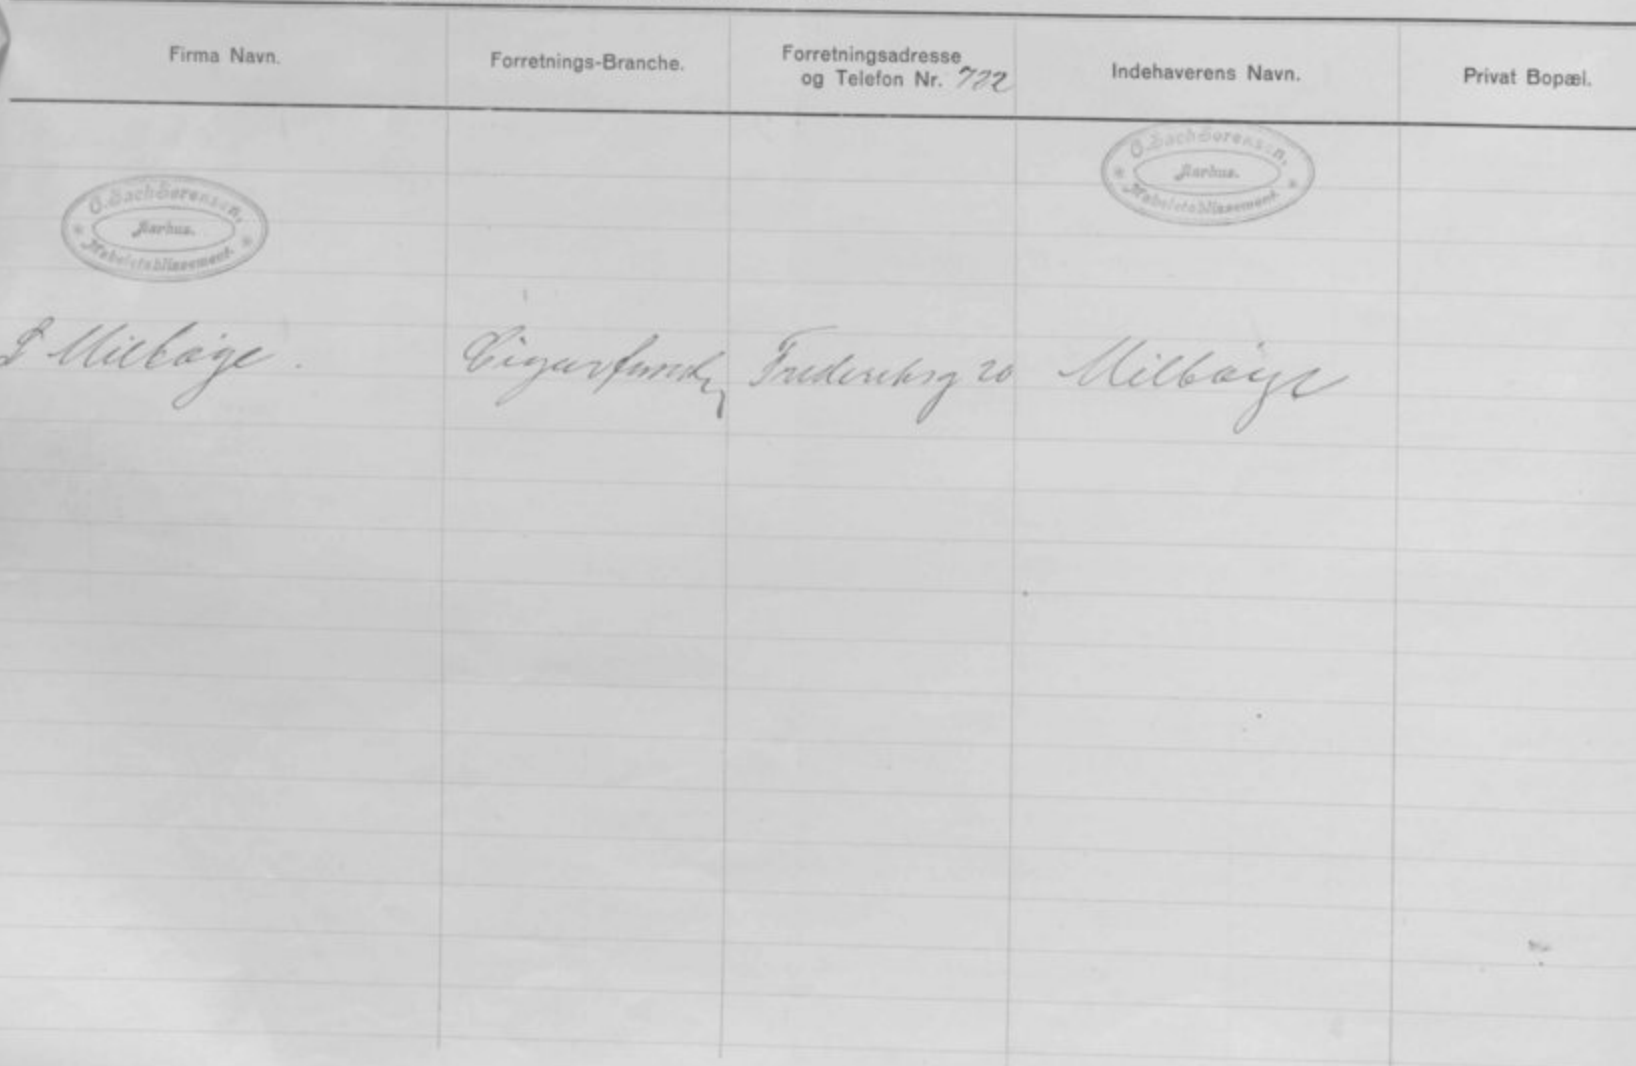 Firma Navn.
Forretnings-Branche.
Forretningsadresse
og Telefon Nr. 722
Indehaverens Navn.
Privat Bopæl.
Aarhus.
Møbeletablissement.
Aarhus.
Møbeletablissement.
Milbøge
Frederiksg 20
Milbøge